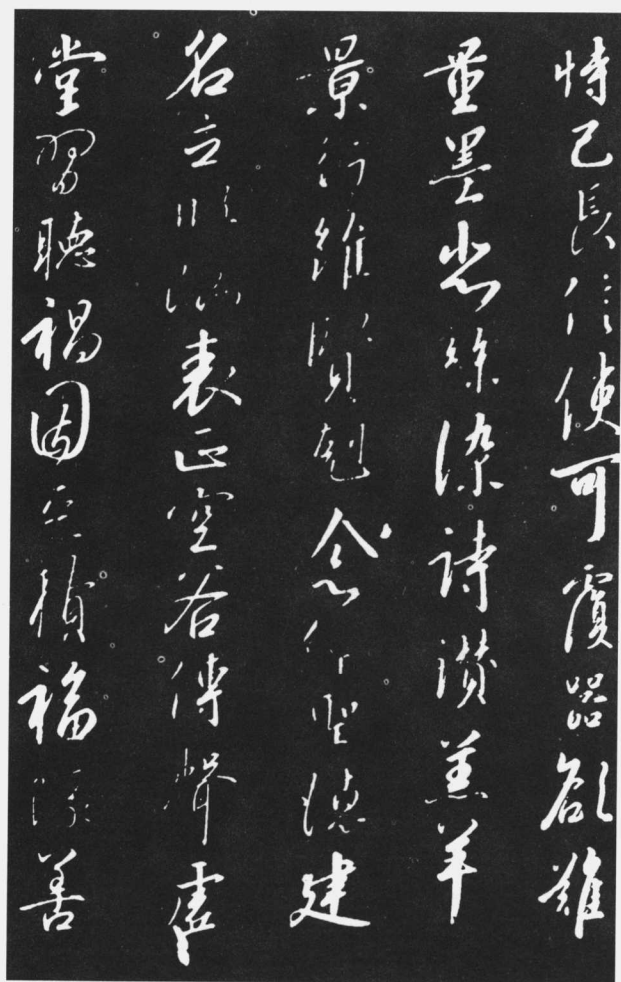 恃己長信使可覆器欲難
量墨悲絲染詩讚羔羊
景行維賢剋念作聖德建
名立形端表正空谷傳聲虛
堂習聽禍因惡積福緣善